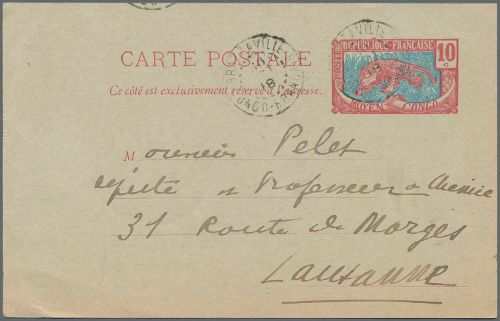 CARTE POSTALE
Ce côté est exclusivement réservé à l'adresse.
REPUBLIQUE FRANÇAISE
POSTES
10
c
MOYEN CONGO
BRAZZAVILLE
CONGO-FRANÇAIS
Monsieur Pelet
Professeur de Chimie
31 Route de Morges
Lausanne